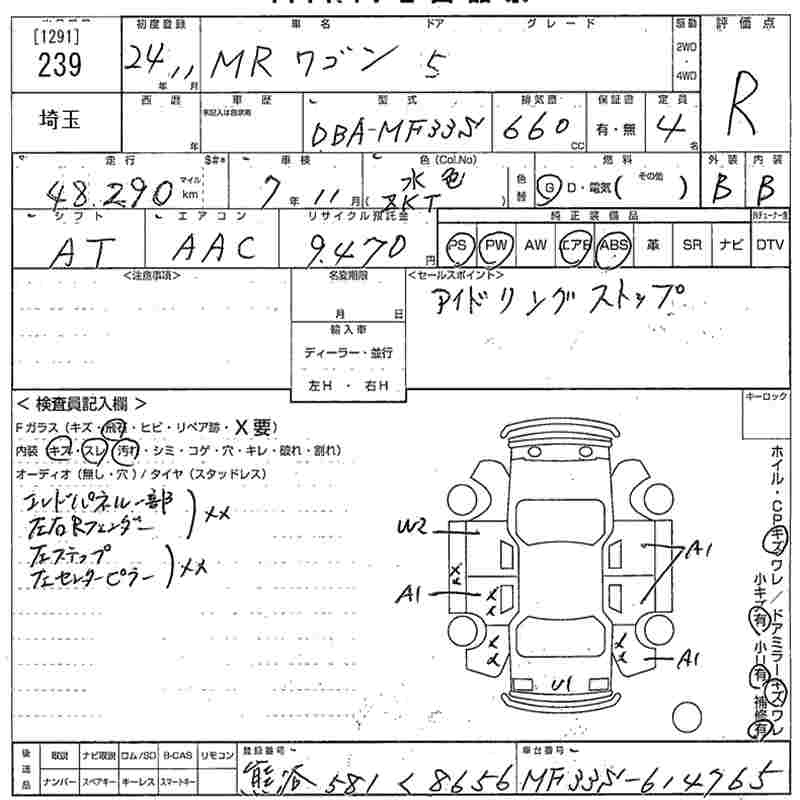 [1291]
239
埼玉
初度登録 車名 ドア グレード 駆動 評価点
24 年 11 月 MR ワゴン 5 2WD・4WD R
西暦 車歴 型式 排気量 保証書 定員
年 DBA-MF33S 660 CC 有・無 4 名
走行 車検 色(Col.No) 色替 燃料 外装 内装
48,290 マイル km 7年 11月 水色 ( ZKT ) G D・電気( その他 ) B B
シフト エアコン リサイクル預託金 純正装備品
AT AAC 9,470 円 PS PW AW エアB ABS 革 SR ナビ DTV
<注意事項> 名変期限 <セールスポイント>
月 日 アイドリングストップ
輸入車
ディーラー・並行
左H ・ 右H
<検査員記入欄> キーロック
Fガラス(キズ・飛石・ヒビ・リペア跡・X要)
内装(キズ・スレ・汚れ・シミ・コゲ・穴・キレ・破れ・割れ)
オーディオ(無し・穴)/タイヤ(スタッドレス)
エンドパネル一部
左右Rフェンダー ) XX
左ステップ
左センターピラー ) XX
W2
A1
A1
A1
U1
XX
XX
XX
XX
ホイル・CPキズワレ/ドアミラーキズワレ
小キズ有 小U有 補修有
後送品 取説 ナビ取説 ロム/SD B-CAS リモコン 登録番号 車台番号
ナンバー スペアキー キーレス スマートキー 熊谷 581 く 8656 MF33S-614765